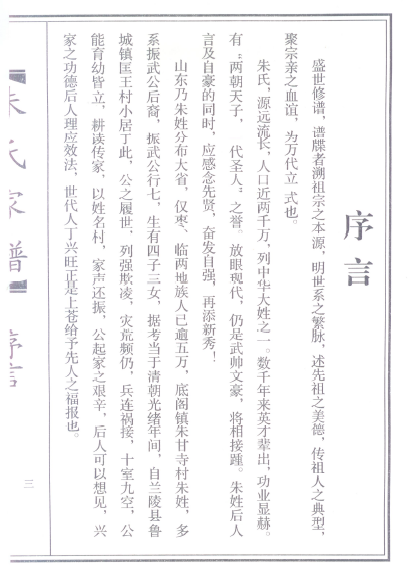 序言
盛世修谱，谱牒者溯祖宗之本源，明世系之繁脉，述先祖之美德，传祖人之典型，
聚宗亲之血谊，为万代立 式也。
朱氏，源远流长，人口近两千万，列中华大姓之一。数千年来英才辈出，功业显赫。
有“两朝天子， 代圣人”之誉。放眼现代，仍是武帅文豪，将相接踵。朱姓后人
言及自豪的同时，应感念先贤，奋发自强，再添新秀！
山东乃朱姓分布大省，仅枣、临两地族人已逾五万，底阁镇朱甘寺村朱姓，多
系振武公后裔，振武公行七，生有四子三女，据考当于清朝光绪年间，自兰陵县鲁
城镇匡王村小居丁此，公之履世，列强欺凌，灾荒频仍，兵连祸接，十室九空，公
能育幼皆立，耕读传家，以姓名村，家声还振，公起家之艰辛，后人可以想见，兴
家之功德后人理应效法，世代人丁兴旺正是上苍给予先人之福报也。
朱氏家谱
序言
三